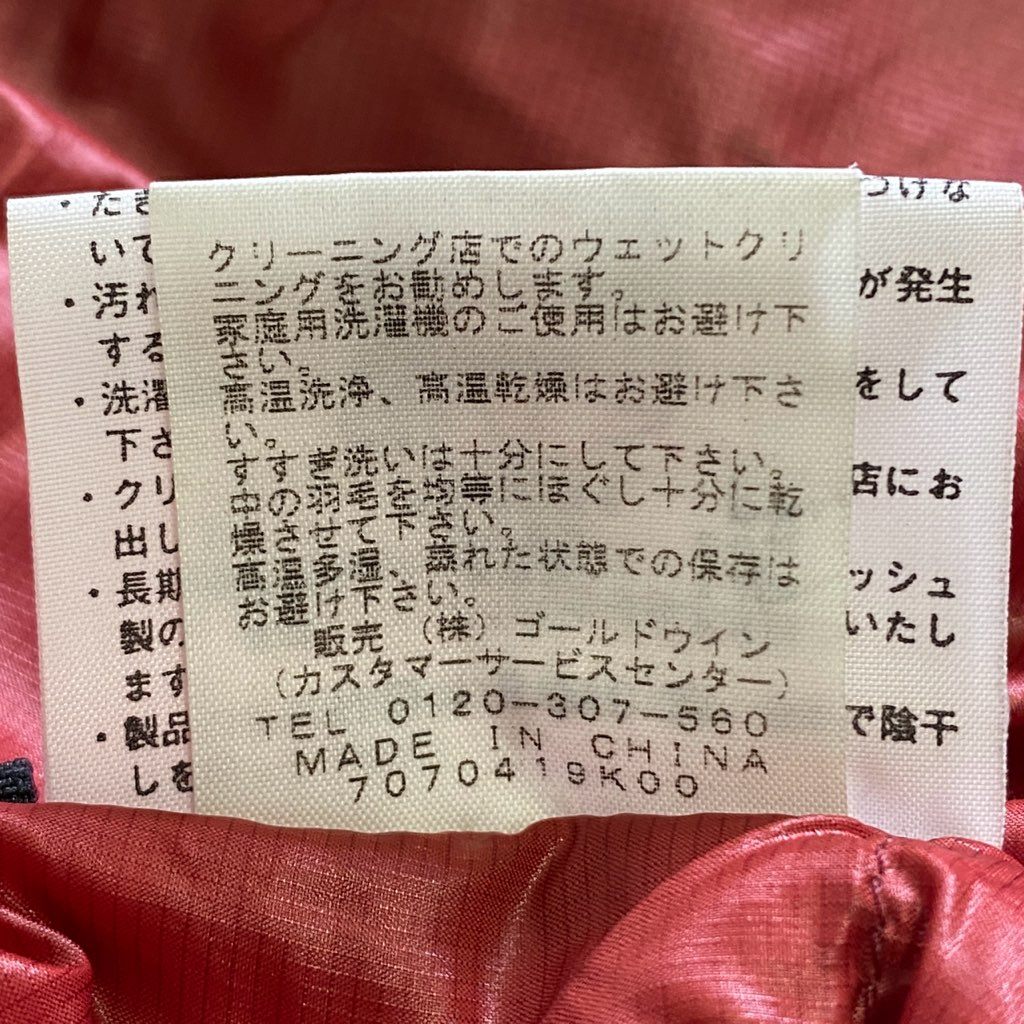 クリーニング店でのウェットクリ
ーニングをお勧めします。
家庭用洗濯機のご使用はお避け下
さい。
高温洗浄、高温乾燥はお避け下さ
い。
すすぎ洗いは十分にして下さい。
中の羽毛を均等にほぐし十分に乾
燥させて下さい。
高温多湿、蒸れた状態での保存は
お避け下さい。
販売 (株) ゴールドウイン
(カスタマーサービスセンター)
TEL 0120-307-560
MADE IN CHINA
7070419K00
・たき
つけな
いて
・汚れ
が発生
する
・洗濯
をして
下さ
・クリ
店にお
出し
・長期
ッシュ
製の
いたし
ます
・製品
で陰干
しを